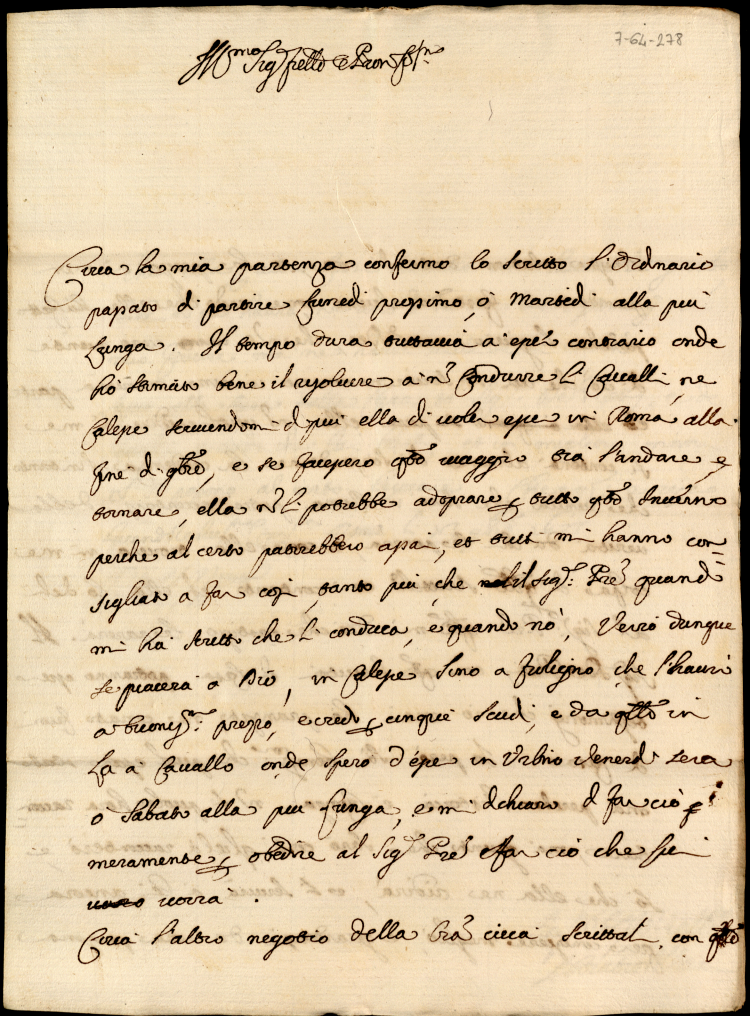 7-64-278
Ill.mo Sig.r fratello e Pron
Circa la mia partenza confermo lo scritto l'ordinario
passato di partire lunedi prossimo, ò Martedi alla più
lunga. Il tempo dura tuttavia à esser contrario onde
hò stimato bene il risolvere à n condurre li Cavalli, ne
Calesse servendomi di più ella di voler esser in Roma alla
fine di qto, e se facessero qto viaggio trà l'andare e
tornare, ella n li potrebbe adoprare p tutto qto Inverno
perche al certo patirebbero assai, et tutti mi hanno con=
sigliato a far cosi, tanto più che il Sig.r Pre quando
mi hà scritto che li conduca, e quando nò, Verrò dunque
se piacerà a Dio, in Calesse sino a Fuligno che l'haurò
a buoniss.o prezzo, e credo p cinque scudi, e da qllo in
là à Cavallo onde spero d'esse in Urbino Venerdi sera
ò Sabato alla più lunga, e mi dchiaro d far ciò p
meramente p obedire al Sig.r Pre e far ciò che
vorrà.
Circa l'altro negotio della circa scrittali, con qto